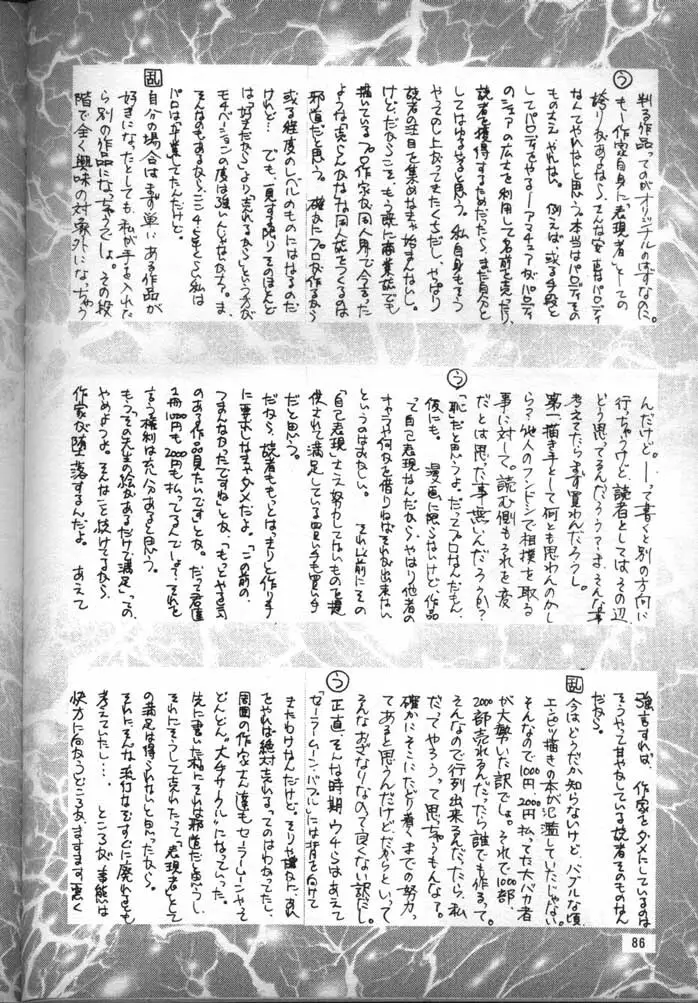 判る作品ってのがオリジナルのはずなのに。
う
もし作家自身に「表現者」としての
誇りがあるなら、そんな安直なパロディ
なんてやれないと思う。本当はパロディその
ものさえやれない。例えば、ある手段と
してパロディをやる―アマチュアがパロディ
のシェアの広さを利用して名前を売ったり、
読者を獲得するためだったら、まだ自分と
してはゆるせると思う。私自身もそう
やってのし上がってきたくちだし、やっぱり
読者の注目を集めなきゃ始まんないし。
けど、だからこそ、もう既に商業誌でも
描いているプロ作家が同人界で今さらった
ような実らんがなみな同人誌をつくるのは
邪道だと思う。確かにプロが作るから
或る程度のレベルのものにはなるのだ
けれど…でも、一見する限りそのほとんど
は「好きだから」より「売れるから」という方が
モチベーションの度は強いんじゃないか?。ま、
そんなのもあるからここ3~4年くらい私は
パロは「卒業」してたんだけど。
乱
自分の場合はまず単にある作品が
好きになったとしても、私が手を入れた
ら別の作品になっちゃうしょ。その段
階で全く興味の対象外になっちゃう
んだけど。―って書くと別の方向に
行っちゃうけど読者としてはその辺
どう思ってるんだろう?ーは、そんな事
考えてたらまず買わんだろうし。
第一描き手として何とも思わんのかし
ら?他人のフンドシで相撲を取る
事に対して。読む側もそれを変
だとは思た事無いんだろうか?
う
「恥」だと思うよ。だってプロなんだもん、
仮にも。漫画に限らないけど、作品
って自己表現なんだから、やはり他者の
キャラや何かを借りねばそれが出来ない
というのはおかしい。それ以前にその
「自己表現」さえ努力してないものを提
供されて満足している買い手も買い手
だと思う。
だから、読者ももっとはっきりと作り手
に要求しなきゃダメだよ。「この前の、
つまんなかったですね」とか、「もっとやる気
のある作品見たいです」とか。だって君達
1冊1000円も2000円も払ってるんでしょ?それを
言う権利は充分あると思う。
もう「その先生の絵があるだけで満足」っての、
やめようよ。そんなこと続けてるから、
作家が堕落するんだよ。あえて
強言すれば、作家をダメにしているのは
そうやって甘やかしている読者そのものなん
だから。
乱
今はどうだか知らないけど、バブルな頃
エンピツ描きの本が氾濫していたじゃない。
そんなので1000円、2000円払ってた大バカ者
が大勢いた訳でしょ。それで1000部、
2000部売れるんだったら誰でも作るって。
そんなので行列出来るんだったら、私
だってやろうって思っちゃうもんなァ。
確かにそこにたどり着くまでの努力っ
てあると思うんだけどだからといって
そんなおざなりなのって良くない訳だし。
う
正直、そんな時期ウチらはあえて
「セーラームーンバブル」には背を向けて
きたわけなんだけど、そりゃ確かに、あれ
をやれば絶対売れるってのはわかってたし、
周囲の作家さん達もセーラームーンやって
どんどん"大手サークル"になっていった。
先に書いた私にそれは邪道だと思うし、
それにそうして売れたって「表現者」として
の満足は得られないと思ったから。
それにそんな流行なぞすぐに廃れるとも
考えていたし…。ところが、事態は
快方に向かうどころか、ますます悪く
86